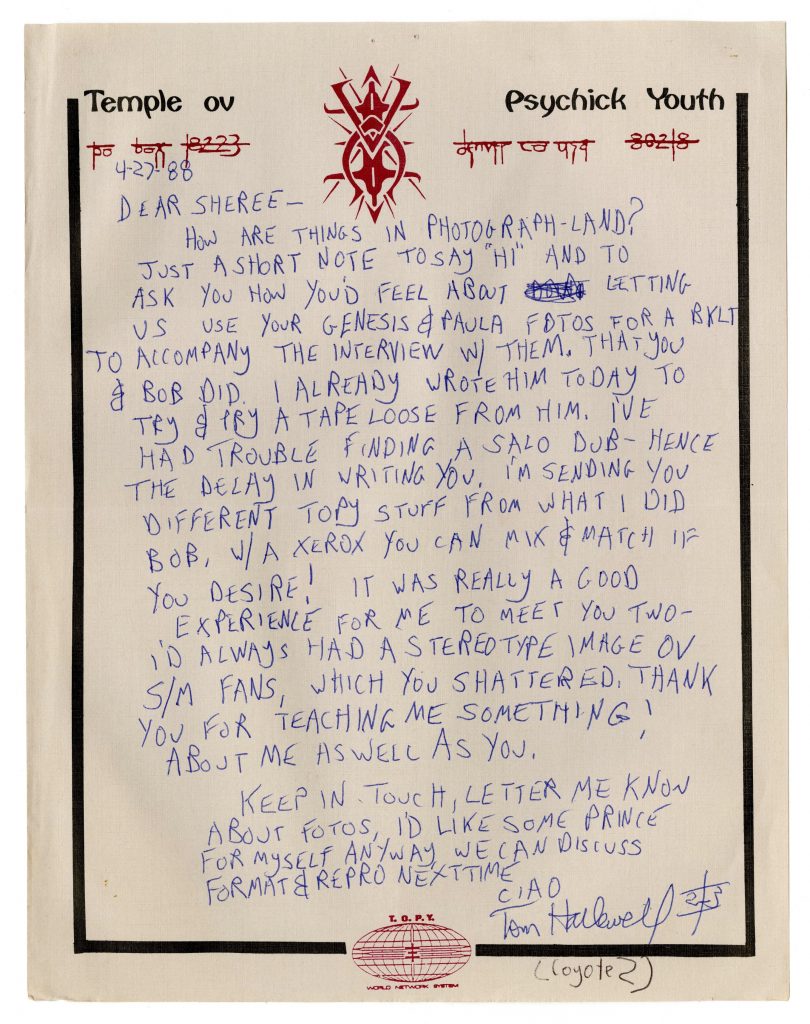 Temple ov Psychick Youth
po box 18223 denver co usa 80218
4-27-88
DEAR SHEREE—
HOW ARE THINGS IN PHOTOGRAPH-LAND?
JUST A SHORT NOTE TO SAY "HI" AND TO
ASK YOU HOW YOU'D FEEL ABOUT LETTING
US USE YOUR GENESIS & PAULA FOTOS FOR A BKLT
TO ACCOMPANY THE INTERVIEW W/ THEM. THAT YOU
& BOB DID. I ALREADY WROTE HIM TODAY TO
TRY & PRY A TAPE LOOSE FROM HIM. I'VE
HAD TROUBLE FINDING A SALO DUB— HENCE
THE DELAY IN WRITING YOU. I'M SENDING YOU
DIFFERENT TOPY STUFF FROM WHAT I DID
BOB, W/A XEROX YOU CAN MIX & MATCH IF
YOU DESIRE! IT WAS REALLY A GOOD
EXPERIENCE FOR ME TO MEET YOU TWO—
I'D ALWAYS HAD A STEREOTYPE IMAGE OV
S/M FANS, WHICH YOU SHATTERED. THANK
YOU FOR TEACHING ME SOMETHING!
ABOUT ME AS WELL AS YOU.
KEEP IN TOUCH, LETTER ME KNOW
ABOUT FOTOS, I'D LIKE SOME PRINCE
FOR MYSELF ANYWAY WE CAN DISCUSS
FORMAT & REPRO NEXT TIME
CIAO
Tom Hallewell 23
(Coyote 2)
T.O.P.Y.
WORLD NETWORK SYSTEM